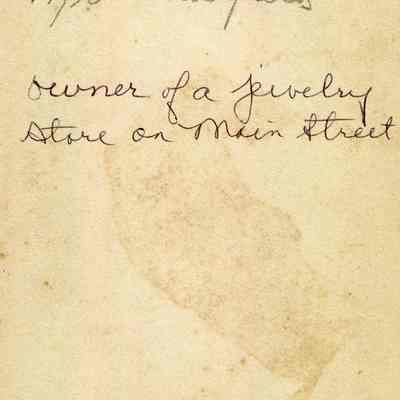 owner of a jewelry
store on Main Street